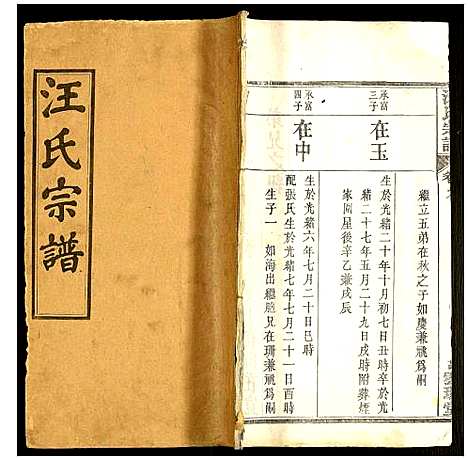 汪氏宗譜
繼立五弟在秋之子如慶兼祧爲嗣
承富三子
在玉
生於光緒二十年十月初七日丑時辛於光
緒二十七年五月二十九日戌時附葬煙
家岡星後辛乙兼戌辰
承富四子
在中
生於光緒六年七月二十日巳時
配張氏生於光緒七年七月二十一日酉時
生子一 如海出繼胞兄在珊兼祧爲嗣